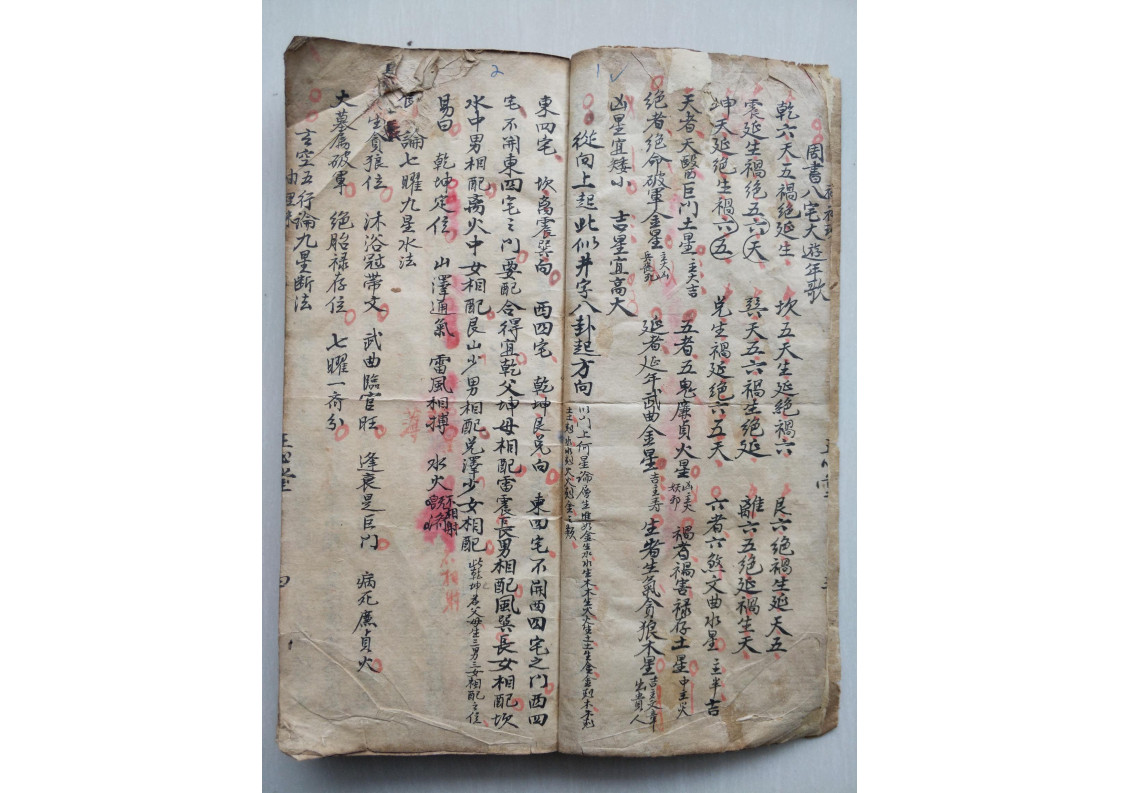 1
周書八宅大遊年歌
乾六天五禍絶延生 坎五天生延絶禍六 艮六絶禍生延天五
震延生禍絶五六天 巽天五六禍生絶延 離六五絶延禍生天
坤天延絶生禍六五 兌生禍延絶六五天 六者六煞文曲水星 主半吉
天者天醫巨門土星 主大吉 五者五鬼廉貞火星 凶主天妖邪 禍者禍害禄存土星 中主火
绝者绝命破軍金星 主大凶 延者延年武曲金星 吉主寿 生者生氣貪狼木星 吉主文章出貴人
凶星宜矮小 吉星宜高大
從向上起此似井字八卦起方向
2
東四宅 坎离震巽向 西四宅 乾坤艮兑向 東四宅不開西四宅之门西四
宅不開東四宅之门要配合得宜乾父坤母相配雷震長男相配風巽長女相配坎
水中男相配离火中女相配艮山少男相配兑澤少女相配 此乾坤老父母生三男三女相配之位
易曰 乾坤定位 山澤通氣 雷風相搏 水火不相射 薄 不相射
論七曜九星水法
生貪狼位 沐浴冠帶文 武曲臨官旺 逢衰是巨门 病死廉貞火
大墓属破軍 绝胎禄存位 七曜一斉分
玄空五行論九星断法